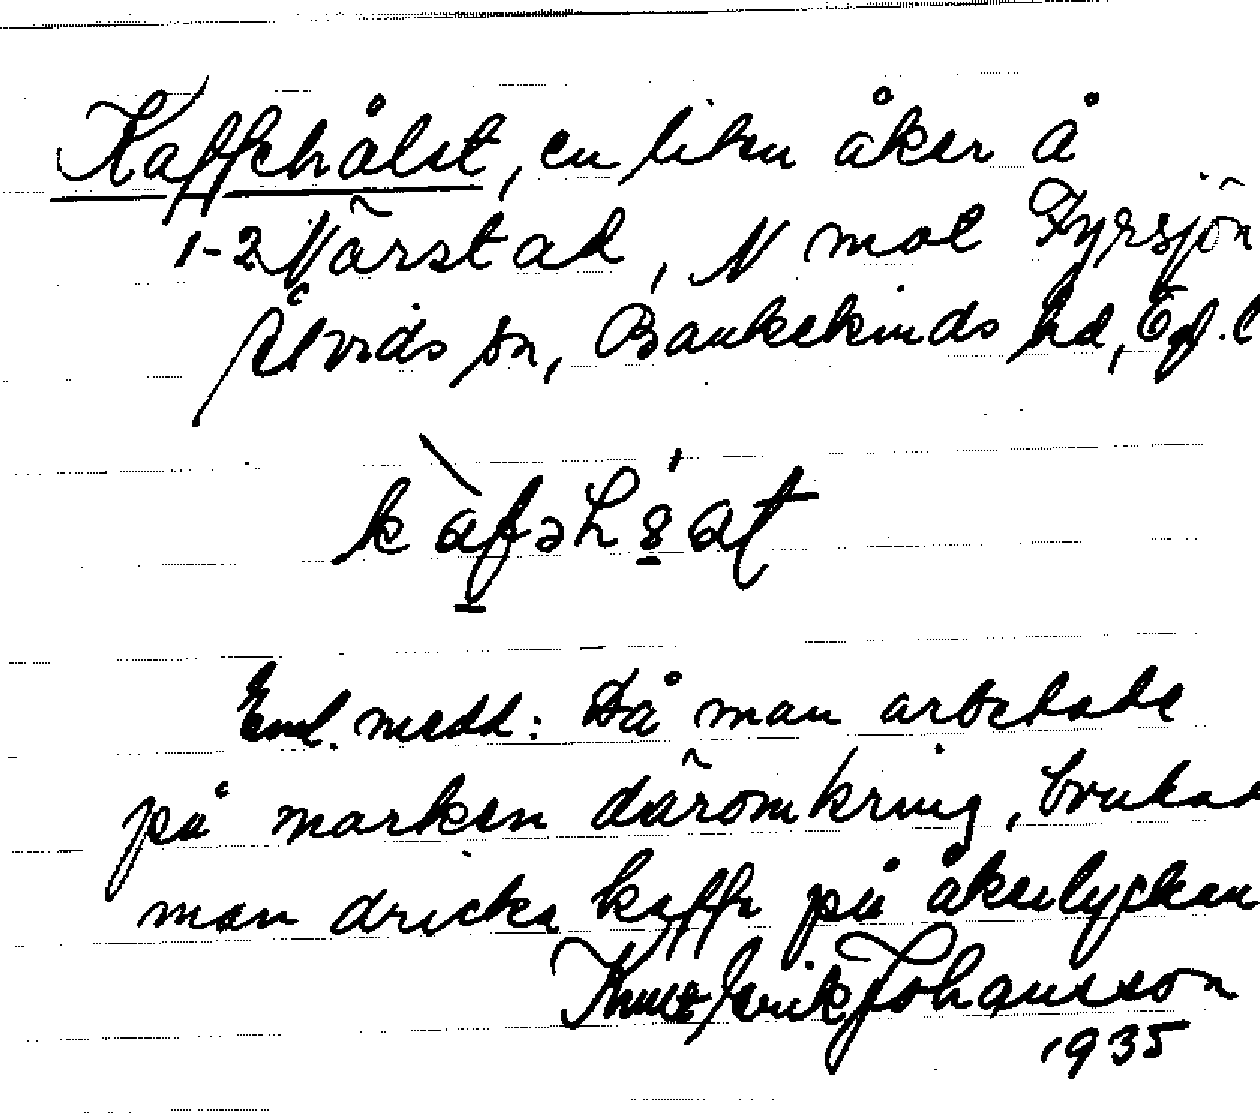 Kaffehålet, en liten åker å
1-2 Värstad, N mot Fyrsjön
Åtvids sn, Bankekinds hd, Ög. l
kàfəhȣ́ət
Enl. medd: Då man arbetade
på marken däromkring, brukad
man dricka kaffe på åkerlyckan
Knut Erik Johansson
1935